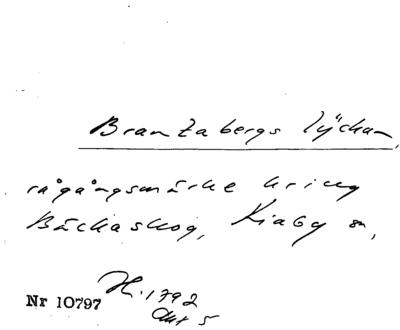 Brantabergs lyckan,
rågångsmärke kring
Bäckaskog, Kiaby sn,
Nr 10797 H. 1792
Akt 5